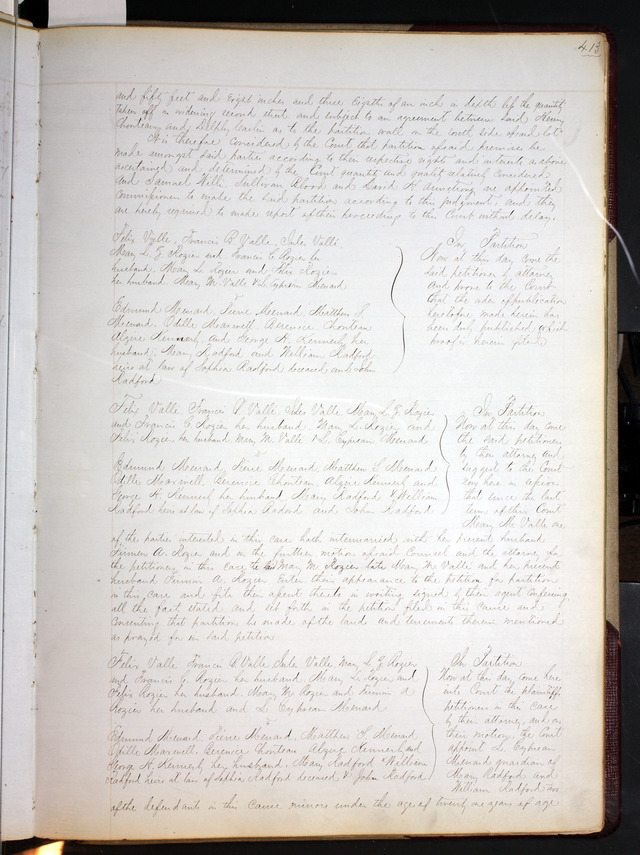 413
and fifty feet and Eight inches and three Eighths of an inch in depth left the quantity
taken off in widening second street and subject to an agreement between said Henry
Chouteau and as to the partition wall on the south side of said lot
It is therefore Considered by the Court that partition of said premises be
made amongst said parties according to their respective rights and interests as above
ascertained and determined by the Court quantity and quality relatively Considered
and Samuel Willi, Sullivan Blood and David H. Armstrong are appointed
Commissioners to make the said partition according to this judgment, and they
are hereby required to make report of their proceedings to this Court without delay.
Felix Valle, Francis B Valle, Jules Valle,
Mary L. G. Rozier and Francis C. Rozier her
husband, Mary L. Rozier and Felix Rozier
her husband Mary M. Valle & L. Cyprian Menard
vs
Edmund Menard, Pierre Menard, Matthew S
Menard, Odille Maxwell Berenice Chouteau
Alzire Kennerly and George H. Kennerly her
husband, Mary Radford and William Radford
heirs at law of Sophia Radford deceased and John
Radford
In Partition
Now at this day come the
said petitioners by attorney
and prove to the Court
that the order of publication
heretofore made herein has
been duly published, which
proof is herein filed.
Felix Valle, Francis B Valle, Jules Valle, Mary L. G. Rozier
and Francis C. Rozier her husband, Mary L. Rozier and
Felix Rozier her husband Mary M. Valle & L. Cyprian Menard
vs
Edmund Menard, Pierre Menard, Matthew S Menard
Odille Maxwell, Berenice Chouteau, Alzire Kennerly and
George H. Kennerly her husband Mary Radford & William
Radford heirs at law of Sophia Radford and John Radford
In Partition
Now at this day come
the said petitioners
by their attorney and
suggest to the Court
now here in session
that since the last
term of this Court
Mary M. Valle one
of the parties interested in this case hath intermarried with her present husband
Firmin A. Rozier and on the further motion of said Counsel and the attorney for
the petitioners in this case, Mary M. Rozier late Mary M Valle and her present
husband Firmin A. Rozier Enter their appearance to the petition for partition
in this case and file their assent thereto in writing signed by them agent Confessing
all the fact stated and set forth in the petition filed in this cause and
Consenting that partition be made of the lands and tenements therein mentioned
as prayed for in said petition
Felix Valle Francis B Valle, Jules Valle Mary L. G. Rozier
and Francis C. Rozier her husband, Mary L. Rozier and
Felix Rozier her husband, Mary M. Rozier and Firmin A
Rozier her husband and L. Cyprian Menard
vs
Edmund Menard, Pierre Menard, Matthew S. Menard,
Odille Maxwell, Berenice Chouteau Alzire Kennerly and
George H. Kennerly her husband, Mary Radford William
Radford heirs at law of Sophia Radford deceased & John Radford
In Partition
Now at this day come here
into Court the plaintiffs
petitioners in this case
by their attorney, and on
their motion, the Court
appoint L. Cyprian
Menard guardian of
Mary Radford and
William Radford two
of the defendants in this cause minors under the age of twenty one years of age